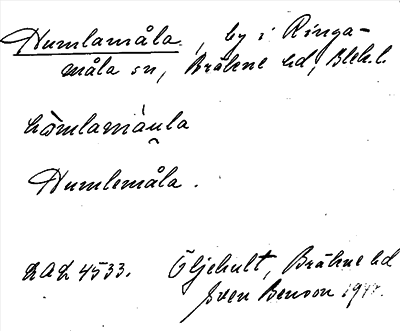 Humlamåla, by i Ringa-
måla sn, Bräkne hd, Blek.l.
hòmlamàula
Humlemåla.
LAL 4533. Öljehult, Bräkne hd
Sven Benson